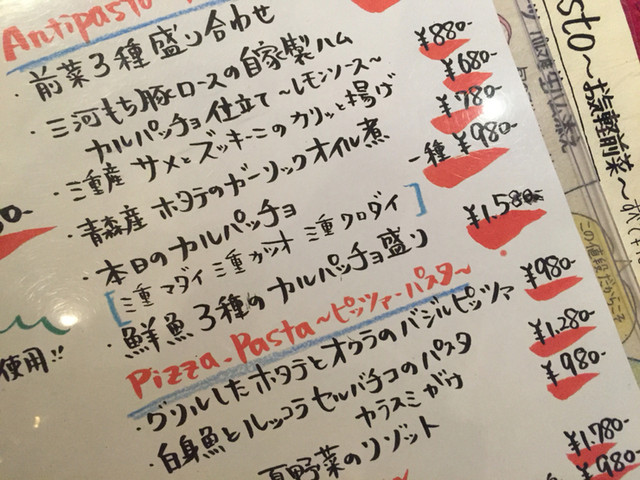 Antipasto
・前菜3種盛り合わせ ¥880-
・三河もち豚ロースの自家製ハム ¥680-
カルパッチョ仕立て~レモンソース~
・三重産 サメとズッキーニのカリッと揚げ ¥780-
・青森産 ホタテのガーリックオイル煮 ¥980-
・本日のカルパッチョ 一種 ¥980-
[三重マダイ 三重カツオ 三重クロダイ]
・鮮魚3種のカルパッチョ盛り ¥1,580-
Pizza-Pasta~ピッツァ-パスタ~
・グリルしたホタテとオクラのバジルピッツァ ¥980-
・白身魚とルッコラセルバチコのパスタ ¥1,280-
カラスミがけ ¥980-
夏野菜のリゾット
¥1,780-
¥980-
使用!!
sto~お気軽前菜~